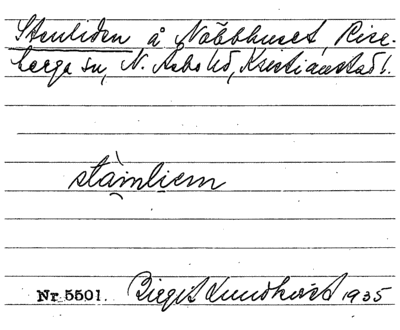 Stenliden å Näbbhuset, Rise-
berga sn, N. Åsbo hd, Kristianstad l.
stàinliem
Nr 5501. Birgit Lundkvist 1935